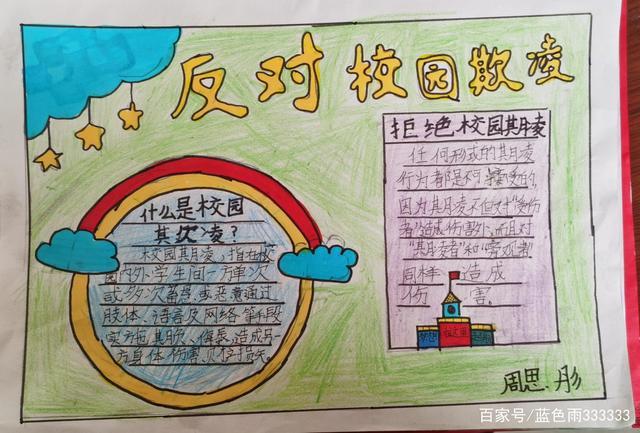 反对校园欺凌
什么是校园
欺凌?
校园期凌,指在校
园内外学生间一方单次
或多次蓄意或恶意通过
肢体、语言及网络等手段
实施期负、侮辱,造成另一
方身体伤害、财产损失。
拒绝校园期凌
任何形式的期凌
行为都是不可接受的,
因为期凌不但对"受伤
者"造成伤害外,而且对
"期凌者"和"旁观者"
同样 造成
伤 害.
周思彤
百家号/蓝色雨333333